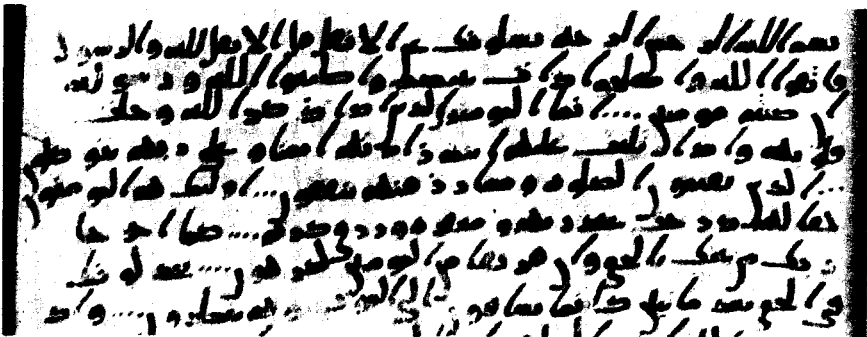 بسم الله الرحمن الرحيم يسلونك عن الانفل قل الانفل لله والرسول
فاتقوا الله واصلحوا ذات بينكم واطيعوا الله ورسوله
ان كنتم مومنين انما المومنون الذين اذا ذكر الله وجلت
قلوبهم واذا تليت عليهم ايته زادتهم ايمنا وعلى ربهم يتوكلو
ن الذين يقيمون الصلوة ومما رزقنهم ينفقون اولئك هم المومنون
حقا لهم درجت عند ربهم ومغفرة ورزق كريم كما اخرجك
ربك من بيتك بالحق وان فريقا من المومنين لكرهون يجدلونك
في الحق بعد ما تبين كانما يساقون الى الموت وهم ينظرون واذ